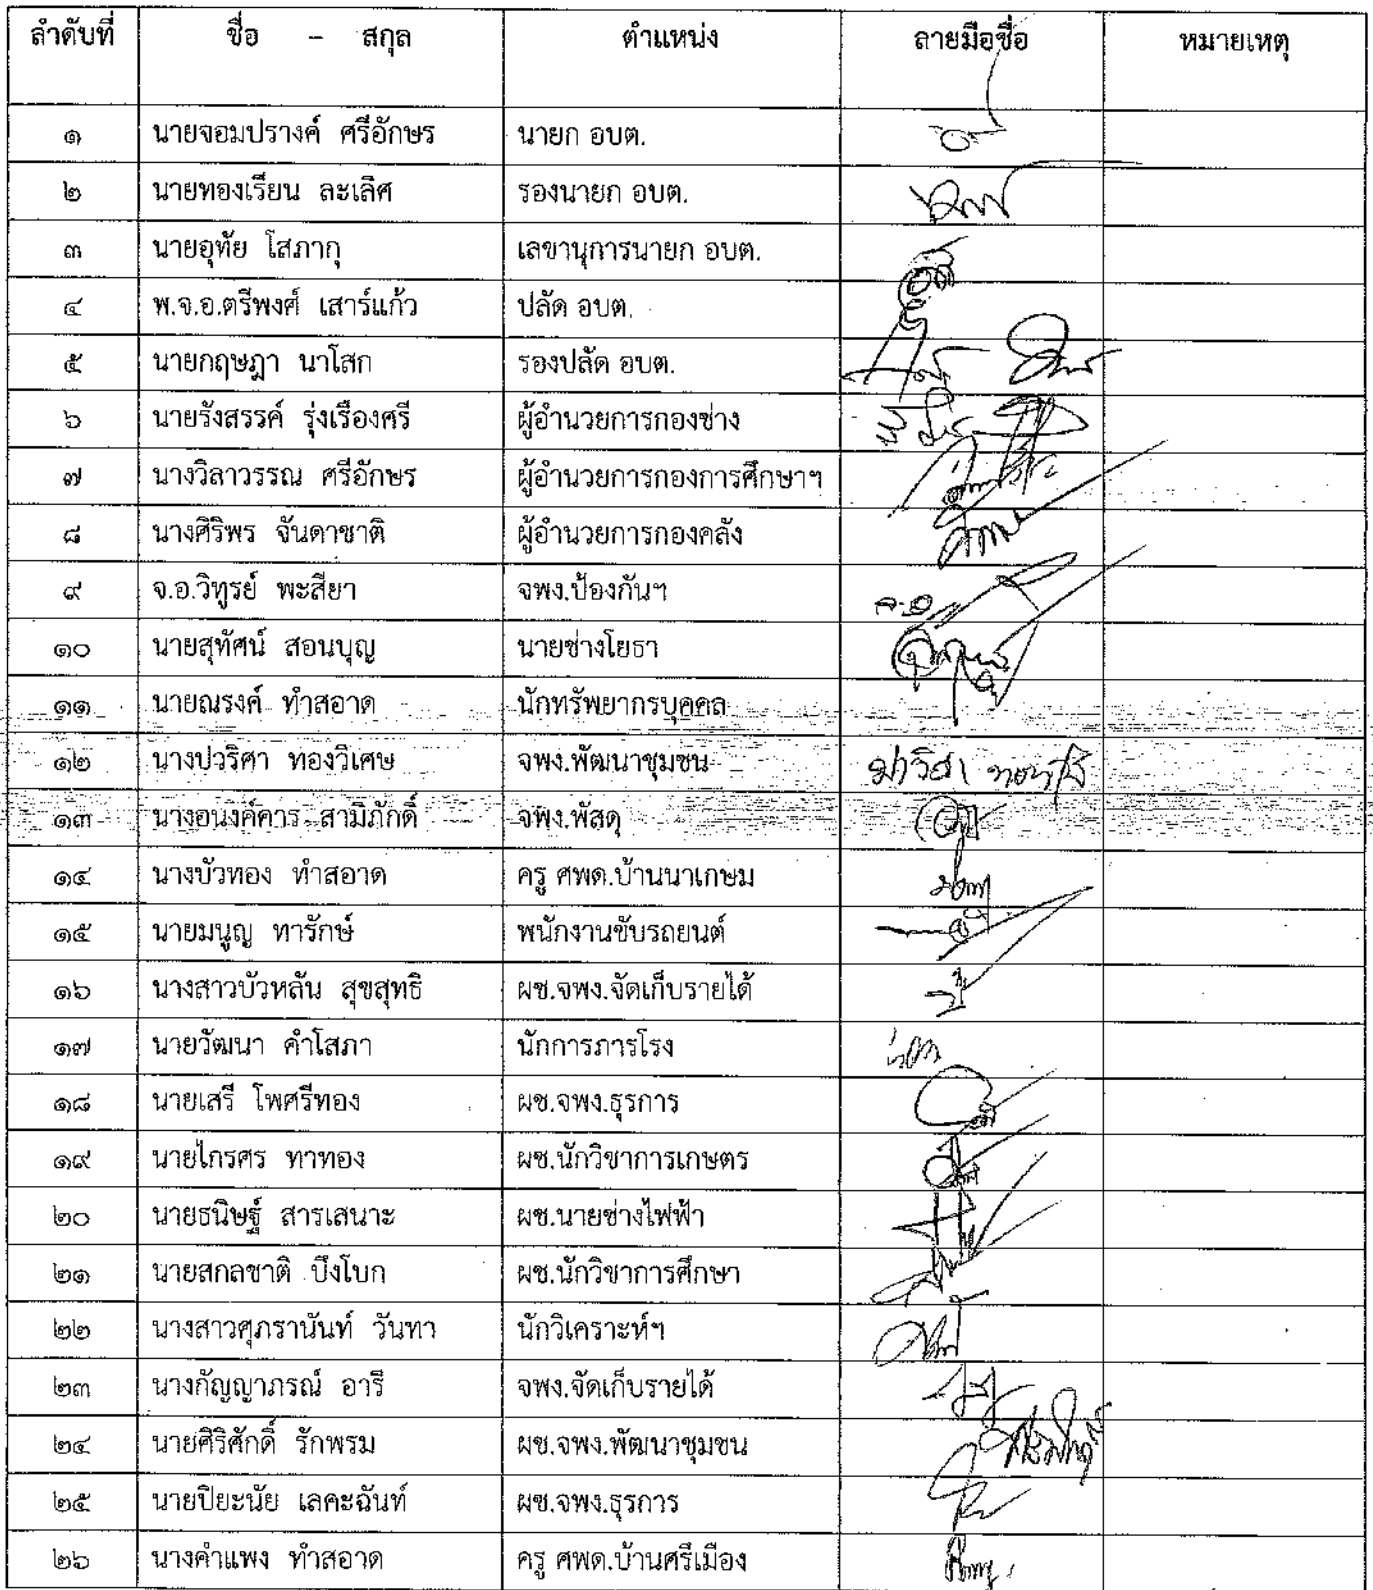 ลำดับที่ ชื่อ – สกุล ตำแหน่ง ลายมือชื่อ หมายเหตุ
๑ นายจอมปรางค์ ศรีอักษร นายก อบต.
๒ นายทองเรียน ละเลิศ รองนายก อบต.
๓ นายอุทัย โสภากุ เลขานุการนายก อบต.
๔ พ.จ.อ.ตรีพงศ์ เสาร์แก้ว ปลัด อบต.
๕ นายกฤษฎา นาโสก รองปลัด อบต.
๖ นายรังสรรค์ รุ่งเรืองศรี ผู้อำนวยการกองช่าง
๗ นางวิลาวรรณ ศรีอักษร ผู้อำนวยการกองการศึกษาฯ
๘ นางศิริพร จันดาชาติ ผู้อำนวยการกองคลัง
๙ จ.อ.วิทูรย์ พะสียา จพง.ป้องกันฯ
๑๐ นายสุทัศน์ สอนบุญ นายช่างโยธา
๑๑ นายณรงค์ ทำสอาด นักทรัพยากรบุคคล
๑๒ นางปวริศา ทองวิเศษ จพง.พัฒนาชุมชน
๑๓ นางอนงค์คาร สามิภักดิ์ จพง.พัสดุ
๑๔ นางบัวทอง ทำสอาด ครู ศพด.บ้านนาเกษม
๑๕ นายมนูญ ทารักษ์ พนักงานขับรถยนต์
๑๖ นางสาวบัวหลัน สุขสุทธิ ผช.จพง.จัดเก็บรายได้
๑๗ นายวัฒนา คำโสภา นักการภารโรง
๑๘ นายเสรี โพศรีทอง ผช.จพง.ธุรการ
๑๙ นายไกรศร ทาทอง ผช.นักวิชาการเกษตร
๒๐ นายธนิษฐ์ สารเสนาะ ผช.นายช่างไฟฟ้า
๒๑ นายสกลชาติ บึงโบก ผช.นักวิชาการศึกษา
๒๒ นางสาวศุภรานันท์ วันทา นักวิเคราะห์ฯ
๒๓ นางกัญญาภรณ์ อารี จพง.จัดเก็บรายได้
๒๔ นายศิริศักดิ์ รักพรม ผช.จพง.พัฒนาชุมชน
๒๕ นายปิยะนัย เลคะฉันท์ ผช.จพง.ธุรการ
๒๖ นางคำแพง ทำสอาด ครู ศพด.บ้านศรีเมือง